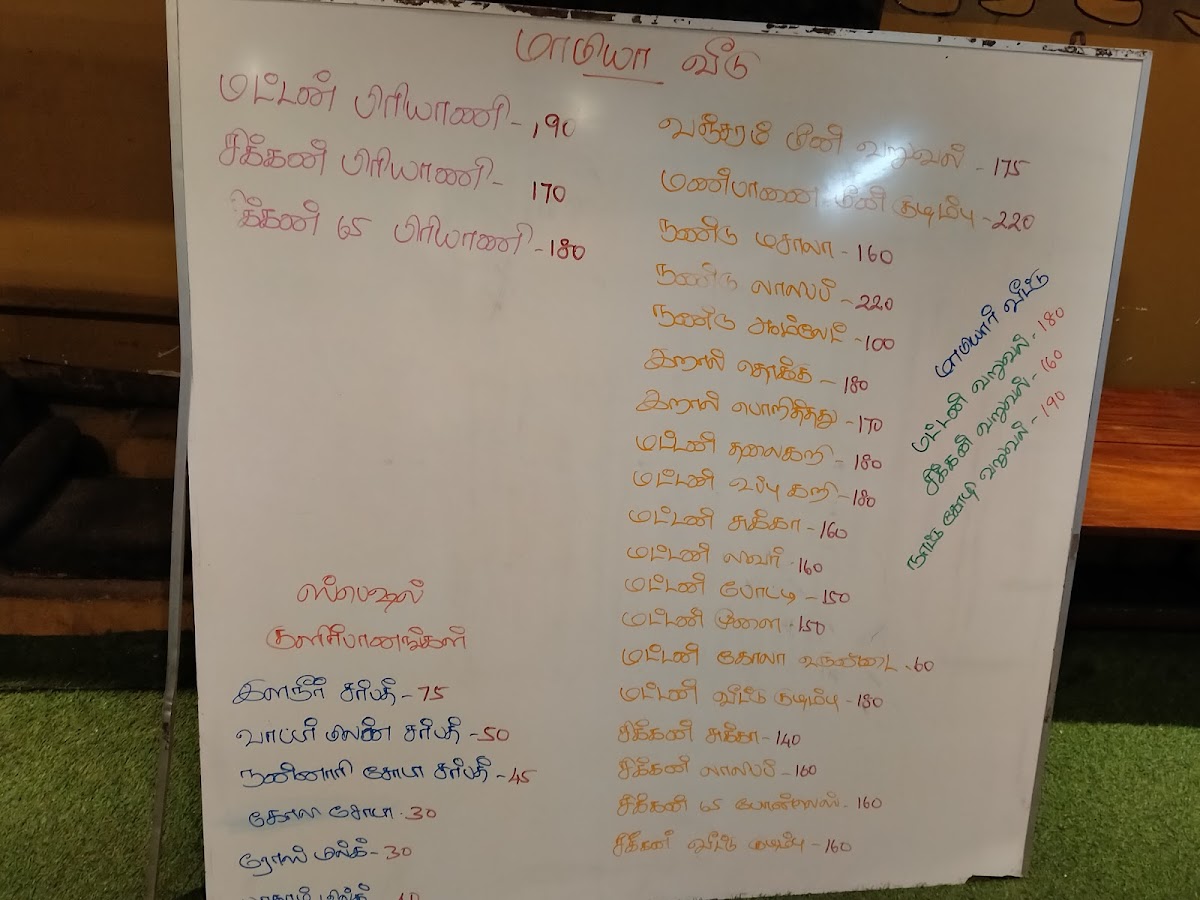 மாமியா வீடு
மட்டன் பிரியாணி - 190
சிக்கன் பிரியாணி - 170
சிக்கன் 65 பிரியாணி - 180
வஞ்சரம் மீன் வறுவல் - 175
மண்பானை மீன் குழம்பு - 220
நண்டு மசாலா - 160
நண்டு லாலிபாப் - 220
நண்டு ஆம்லேட் - 100
இறால் தொக்கு - 180
இறால் பொறித்தது - 170
மட்டன் தலைகறி - 180
மட்டன் உப்பு கறி - 180
மட்டன் சுக்கா - 160
மட்டன் லிவர் - 160
மட்டன் போட்டி - 150
மட்டன் மூளை - 150
மட்டன் கோலா உருண்டை - 60
மட்டன் வீட்டு குழம்பு - 180
சிக்கன் சுக்கா - 140
சிக்கன் - 160
சிக்கன் 65 போன்லெஸ் - 160
சிக்கன் வீட்டு குழம்பு - 160
மாமியார் வீட்டு
மட்டன் வறுவல் - 180
சிக்கன் வறுவல் - 160
நாட்டு கோழி வறுவல் - 190
ஸ்பெஷல்
குளிர்பானங்கள்
இளநீர் சர்பத் - 75
சர்பத் - 50
நன்னாரி சோடா சர்பத் - 45
கோலி சோடா - 30
ரோஸ் மில்க் - 30
பாதாம் மில்க்